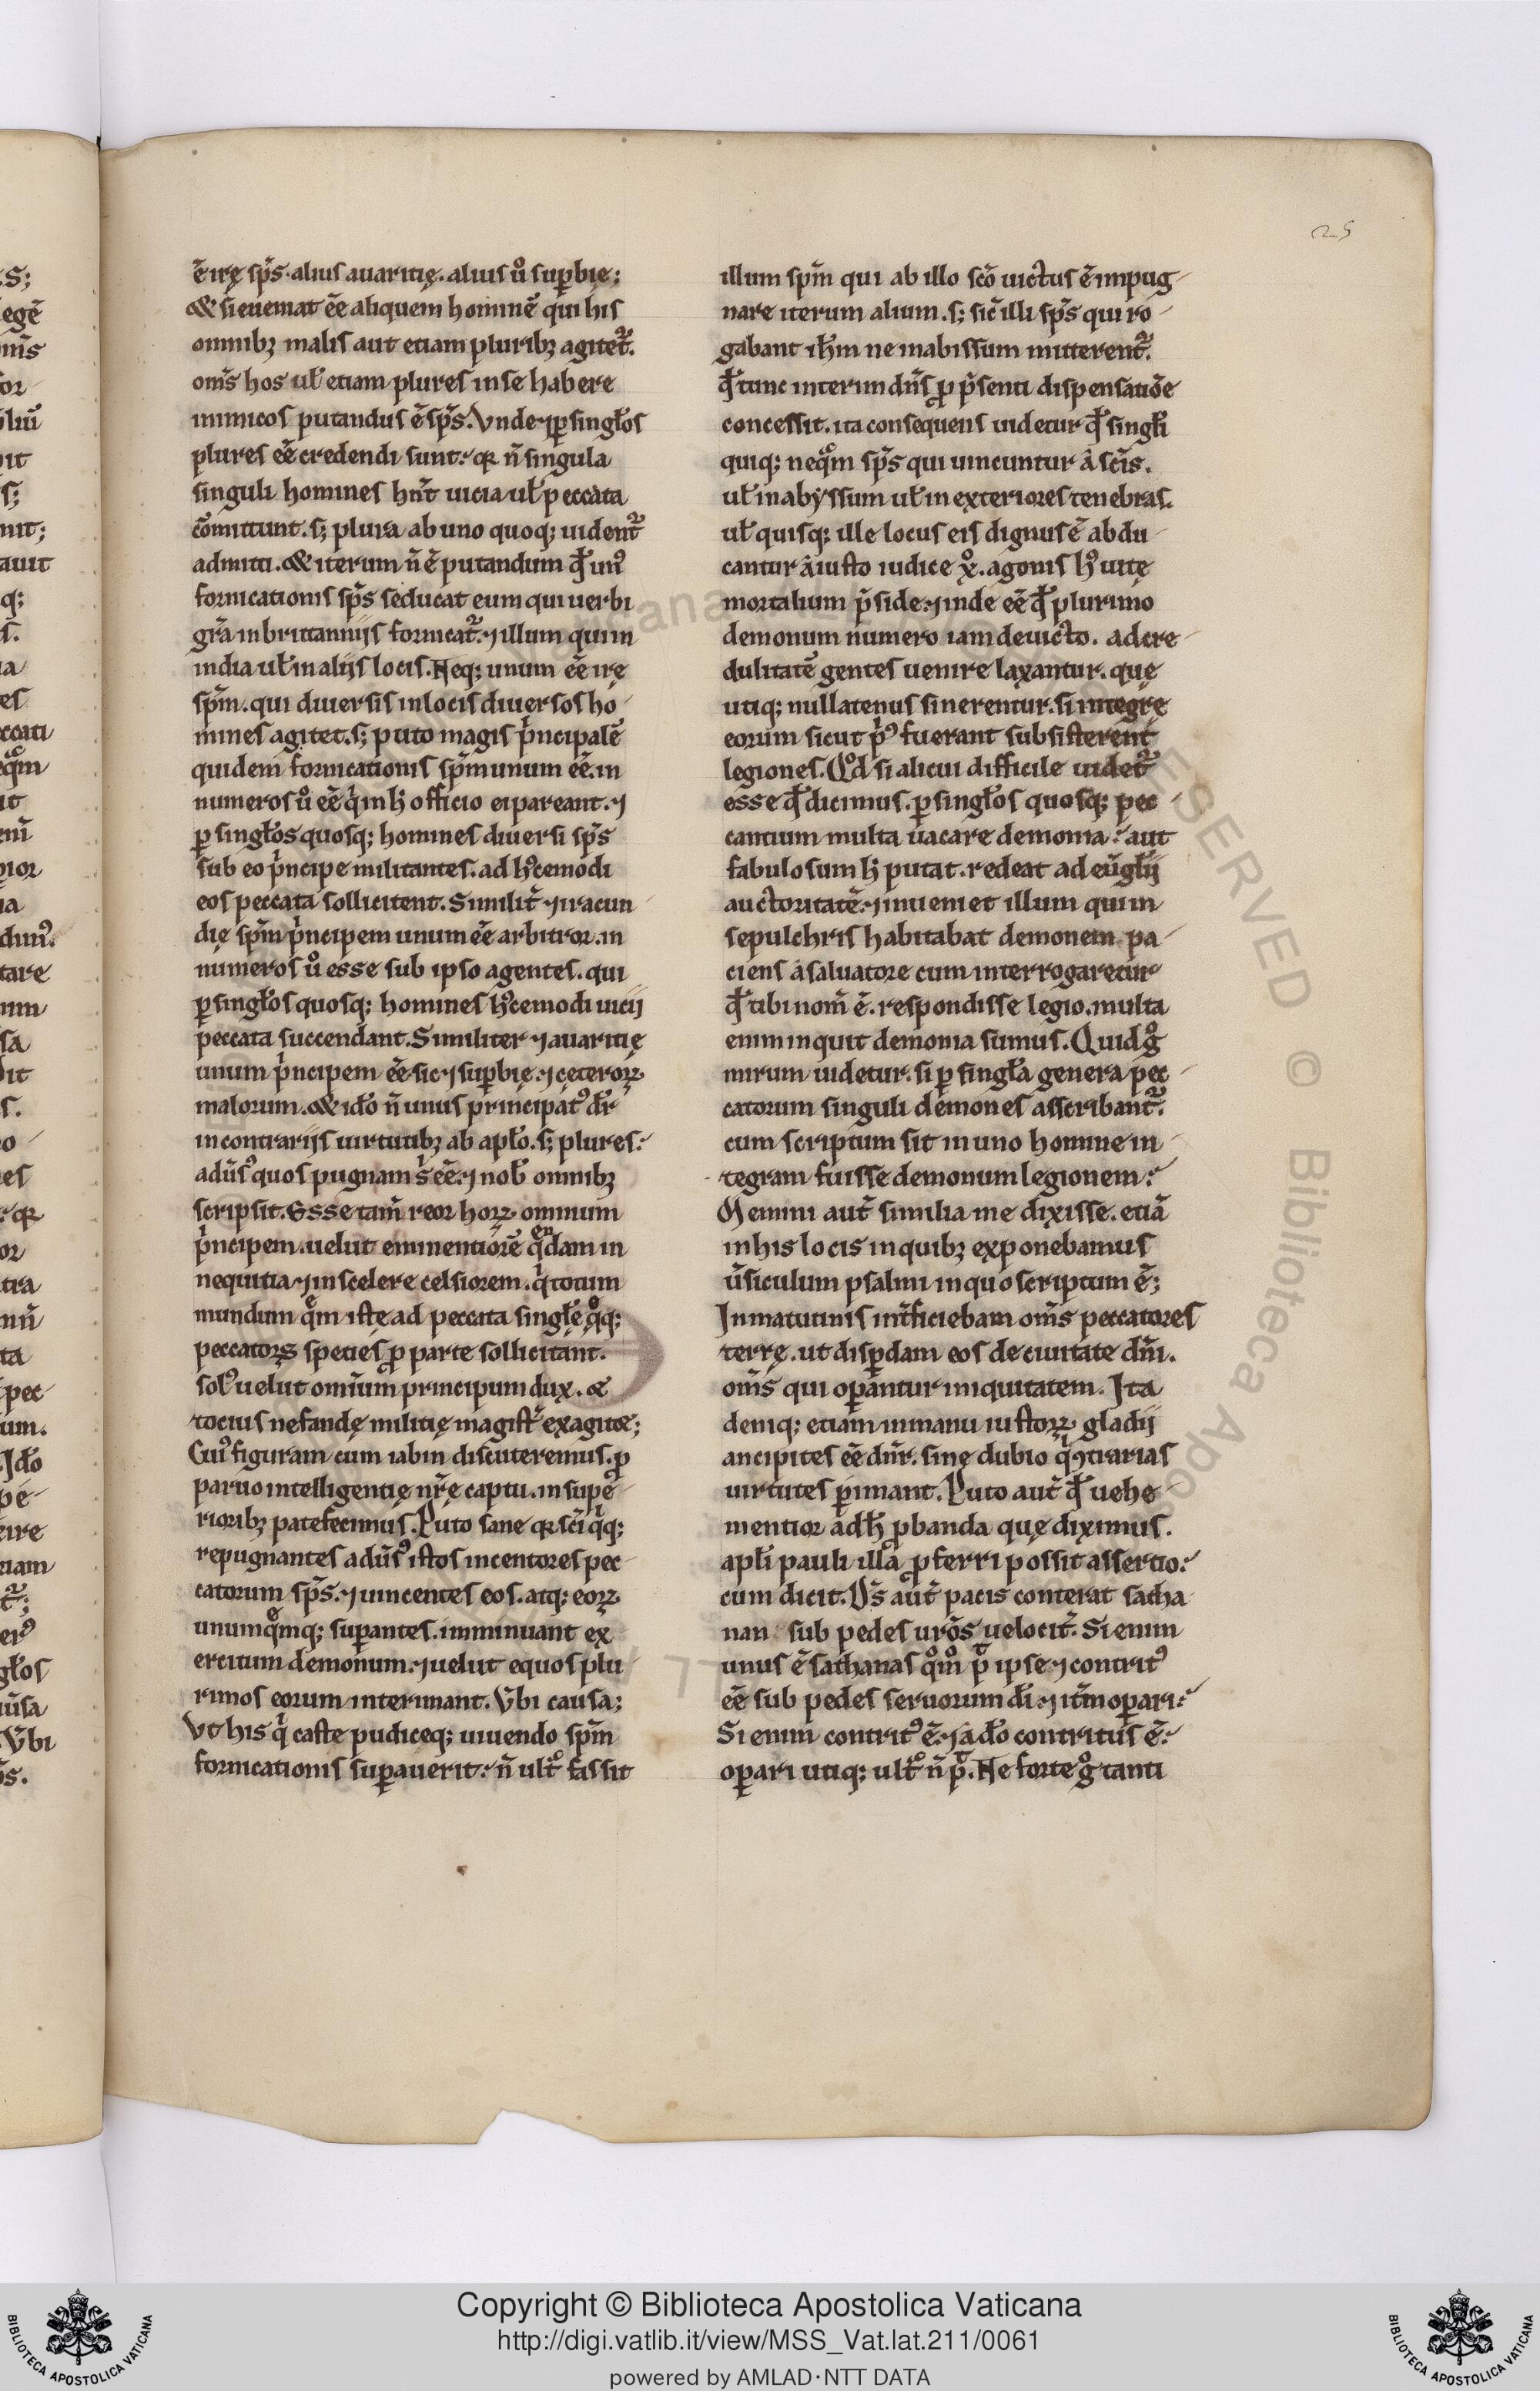 25
ē irę sp̄s. alius auaritię. alius ů suꝑbię;
& si eueniat ēe aliquem hominē qui his
omnibꝫ malis aut etiam pluribꝫ agitet᷑.
om̄s hos uł etiam plures in se habere
inimicos putandus ē sp̄s. Vnde ⁊ ꝑ singłos
plures eē credendi sunt. qꝛ n̄ singula
singuli homines hn̄t uicia uł peccata
cōmittunt. s; plura ab uno quoq; uident᷑
admitti. & iterum n̄ ē putandum qđ un᷒
fornicationis sp̄s seducat eum qui uerbi
gr̄a in brittanniis fornicat᷑. ⁊ illum qui in
india uł in aliis locis. Neq; unum eē irę
sp̄m. qui diuersis in locis diuersos ho
mines agitet. s; puto magis pͥncipalē
quidem fornicationis sp̄m unum eē. in
numeros ů eē qͥ in ħ officio ei pareant. ⁊
ꝑ singłos quosq; homines diuersi sp̄s
sub eo pͥncipe militantes. ad h᷒cemodi
eos peccata sollicitent. Similit̄ ⁊ iracun
dię sp̄m pͥncipem unum eē arbitror. in
numeros ů esse sub ipso agentes. qui
ꝑ singłos quosq; homines h᷒cemodi uicii
peccata succendant. Similiter ⁊ auaritię
unum pͥncipem eē sic ⁊ suꝑbię. ⁊ ceteroꝝ
malorum. & iđo n̄ unus principat᷒ dr̄
in contrariis uirtutibꝫ ab apło. s; plures.
adūs᷒ quos pugnam sͥ eē. ⁊ nob̄ omnibꝫ
scripsit. Esse tam̄ reor hoꝝ omnium
pͥncipem. uelut eminentiorē qͤⁿdam in
nequitia ⁊ in scelere celsiorem. qͥ totum
mundum qͤm istę ad peccata singłę qͦq;
peccatorꝫ species ꝓ parte sollicitant.
sol᷒ uelut omnium principum dux. &
tocius nefandę militię magist̄ exagitat;
Cui᷒ figuram cum iabin discuteremus. ꝓ
paruo intelligentię nr̄ę captu. in supe
rioribꝫ patefecimus. Puto sane qꝛ sc̄i qͥq;
repugnantes adūs᷒ istos incentores pec
catorum sp̄s. ⁊ uincentes eos. atq; eoꝝ
unumqͤmq; suꝑantes. imminuant ex
ercitum demonum. ⁊ uelut equos plu
rimos eorum interimant. Vbi causa;
Vt his qͥ caste pudiceq; uiuendo sp̄m
fornicationis suꝑauerit. n̄ ultͦ fas sit
illum sp̄m qui ab illo sc̄o uictus ē impug
nare iterum alium. s; sic̄ illi sp̄s qui ro
gabant ih̄m ne in abissum mitterent᷑.
qđ tunc interim dn̄s ꝓ p̄senti dispensatiōe
concessit. ita consequens uidetur qđ singłi
quiq; neqͦm sp̄s qui uincuntur à sc̄is.
uł in abyssum uł in exteriores tenebras.
uł quisq; ille locus eis dignus ē abdu
cantur à iusto iudice x᷒. agonis h᷒ uitę
mortalium p̄side. ⁊ inde eē qđ plurimo
demonum numero iam deuicto. ad cre
dulitatē gentes uenire laxantur. quę
utiq; nullatenus sinerentur. si integrę
eorum sicut pͥ᷒ fuerant subsisterent
legiones. Qͦd si alicui difficile uidet᷑
esse qđ dicimus. ꝑ singłos quosq; pec
cantium multa uacare demonia. aut
fabulosum ħ putat. redeat ad eūgłii
auctoritatē. ⁊ inueniet illum qui in
sepulchris habitabat demonem pa
ciens à saluatore cum interrogaretur
qđ tibi nom̄ ē. respondisse legio. multa
enim inquit demonia sumus. Quid gͦ
mirum uidetur. si ꝑ singła genera pec
catorum singuli demones asscribant᷑.
cum scriptum sit in uno homine in
tegram fuisse demonum legionem.
Memini aut̄ similia me dixisse. etiā
in his locis in quibꝫ exponebamus
ūsiculum psalmi in quo scriptum ē;
In matutinis int̄ficiebam om̄s peccatores
terrę. ut disꝑdam eos de ciuitate dn̄i.
om̄s qui oꝑantur iniquitatem. Ita
deniq; etiam in manu iustoꝝ gladii
ancipites eē dn̄r. sine dubio qͥ ꝯtrarias
uirtutes ꝑimant. Puto aut̄ qđ uehe
mentior ad ħ ꝓbanda quę diximus.
apłi pauli illa ꝓferri possit assertio.
cum dicit. Ds̄ aut̄ pacis conterat satha
nan sub pedes uros̄ uelocit̄. Si enim
unus ē sathanas qͦmͦ p̄t ipse ⁊ contrit᷒
eē sub pedes seruorum dī. ⁊ itm̄ oꝑari.
Si enim contrit᷒ ē. ⁊ ađo contritus ē.
oꝑari utiq; ultͦ n̄ p̄t. Ne forte gͦ tanti
Copyright © Biblioteca Apostolica Vaticana
http://digi.vatlib.it/view/MSS_Vat.lat.211/0061
powered by AMLAD·NTT DATA
BIBLIOTECA APOSTOLICA VATICANA
BIBLIOTECA APOSTOLICA VATICANA